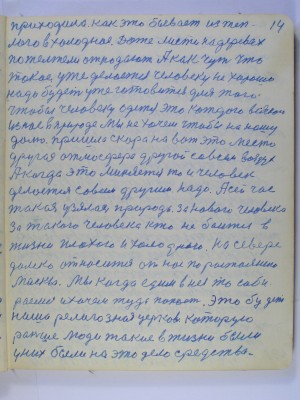 приходила. как это бывает из теп- 14
лого в холодное. Даже листи на деревьях
пожелтеют отпадают. А как чуть что
такое, уже делается человеку не хорошо
надо будет уже готовится для этого
чтобы человеку сдела это каждого
в природе. Мы не хочем чтобы на нашу
долю пришла скора на вот это место
другая атмосфера другой совсем воздух
А когда это меняется то и человек
делается совсем другим надо. А сейчас
такая узялась природа за нового человека
за такого человека кто не боится в
жизни плохого и холодного. На севере
далеко относится от нас по растоянию
Москва. Мы когда едим в неё то соби
раемся и хочем туда попасть. Это будет
наша религозная церков которую
раньше люди такие в жизни были
у них были на это дело средства.